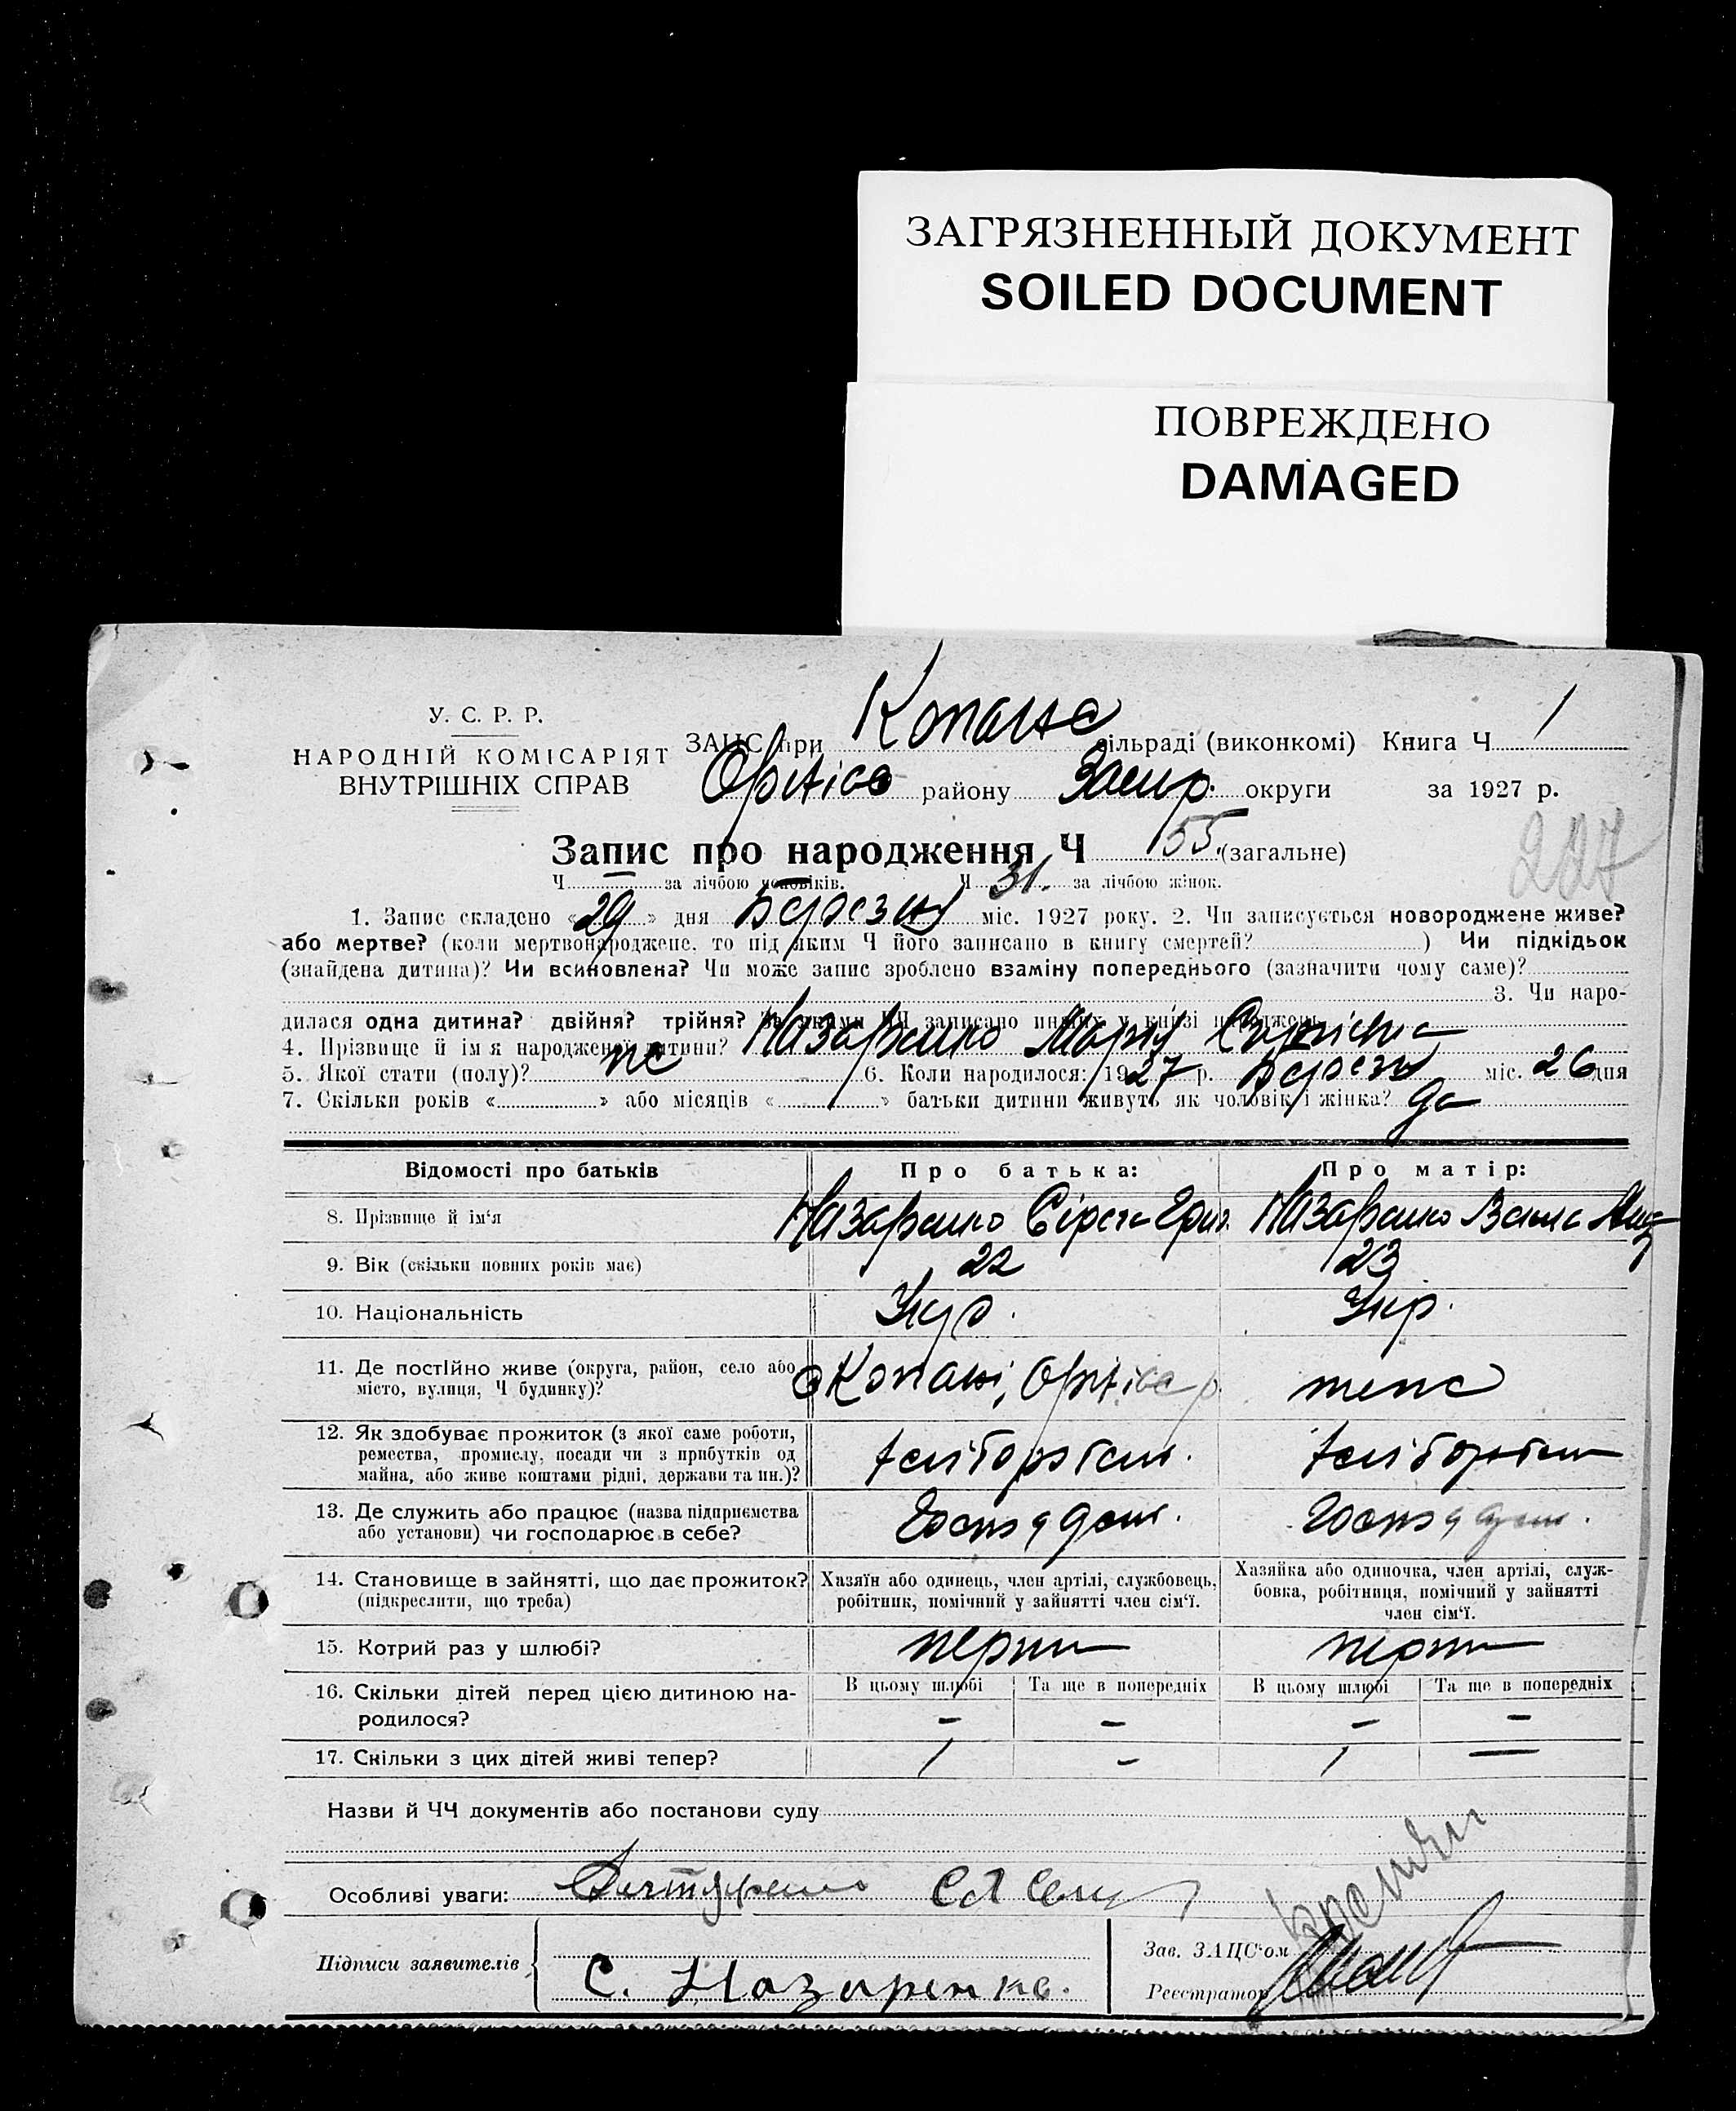 ЗАГРЯЗНЕННЫЙ ДОКУМЕНТ
SOILED DOCUMENT
ПОВРЕЖДЕНО
DAMAGED
У. С. Р. Р.
НАРОДНІЙ КОМІСАРІЯТ
ВНУТРІШНІХ СПРАВ
ЗАЦС при сільраді (виконкомі) Книга Ч. 1
Оріхів району Запор. округи за 1927 р.
Запис про народження Ч 155. (загальне)
227
Ч. — за лічбою чоловіків. Ч 31. за лічбою жінок.
1. Запис складено «29» дня Березня міс. 1927 року. 2. Чи записується новороджене живе?
або мертве? (коли мертвонароджене, то під яким Ч його записано в книгу смертей? ) Чи підкідьок
(знайдена дитина)? Чи всиновлена? Чи може запис зроблено взаміну попереднього (зазначити чому саме)?
3. Чи наро-
дилася одна дитина? двійня? трійня? За якими ЧЧ записано инших у книзі народжень
4. Прізвище й ім'я народженої дитини? Назаренко Марія
5. Якої стати (полу)? 6. Коли народилося: 1927 р. Березня міс. 26 дня
7. Скільки років « » або місяців « » батьки дитини живуть як чоловік і жінка? да
Відомості про батьків Про батька: Про матір:
8. Прізвище й ім'я Назаренко Григ. Назаренко
9. Вік (скільки повних років має) 22 23
10. Національність Укр. Укр.
11. Де постійно живе (округа, район, село або
місто, вулиця, Ч будинку)? Копані, Оріхівс р.
12. Як здобуває прожиток (з якої саме роботи,
ремества, промислу, посади чи з прибутків од
майна, або живе коштами рідні, держави та ин.)? хліборобст. хліборобст
13. Де служить або працює (назва підприємства
або установи) чи господарює в себе?
14. Становище в зайнятті, що дає прожиток?
(підкреслити, що треба)
Хазяїн або одинець, член артілі, службовець,
робітник, помічний у зайнятті член сім'ї.
Хазяйка або одиночка, член артілі, служ-
бовка, робітниця, помічний у зайнятті
член сім'ї.
15. Котрий раз у шлюбі?
В цьому шлюбі Та ще в попередніх В цьому шлюбі Та ще в попередніх
16. Скільки дітей перед цією дитиною на-
родилося? – – – –
17. Скільки з цих дітей живі тепер? 1 – 1 –
Назви й ЧЧ документів або постанови суду
Особливі уваги:
Підписи заявителів
С. Назаренко.
Зав. ЗАЦС'ом
Реєстратор